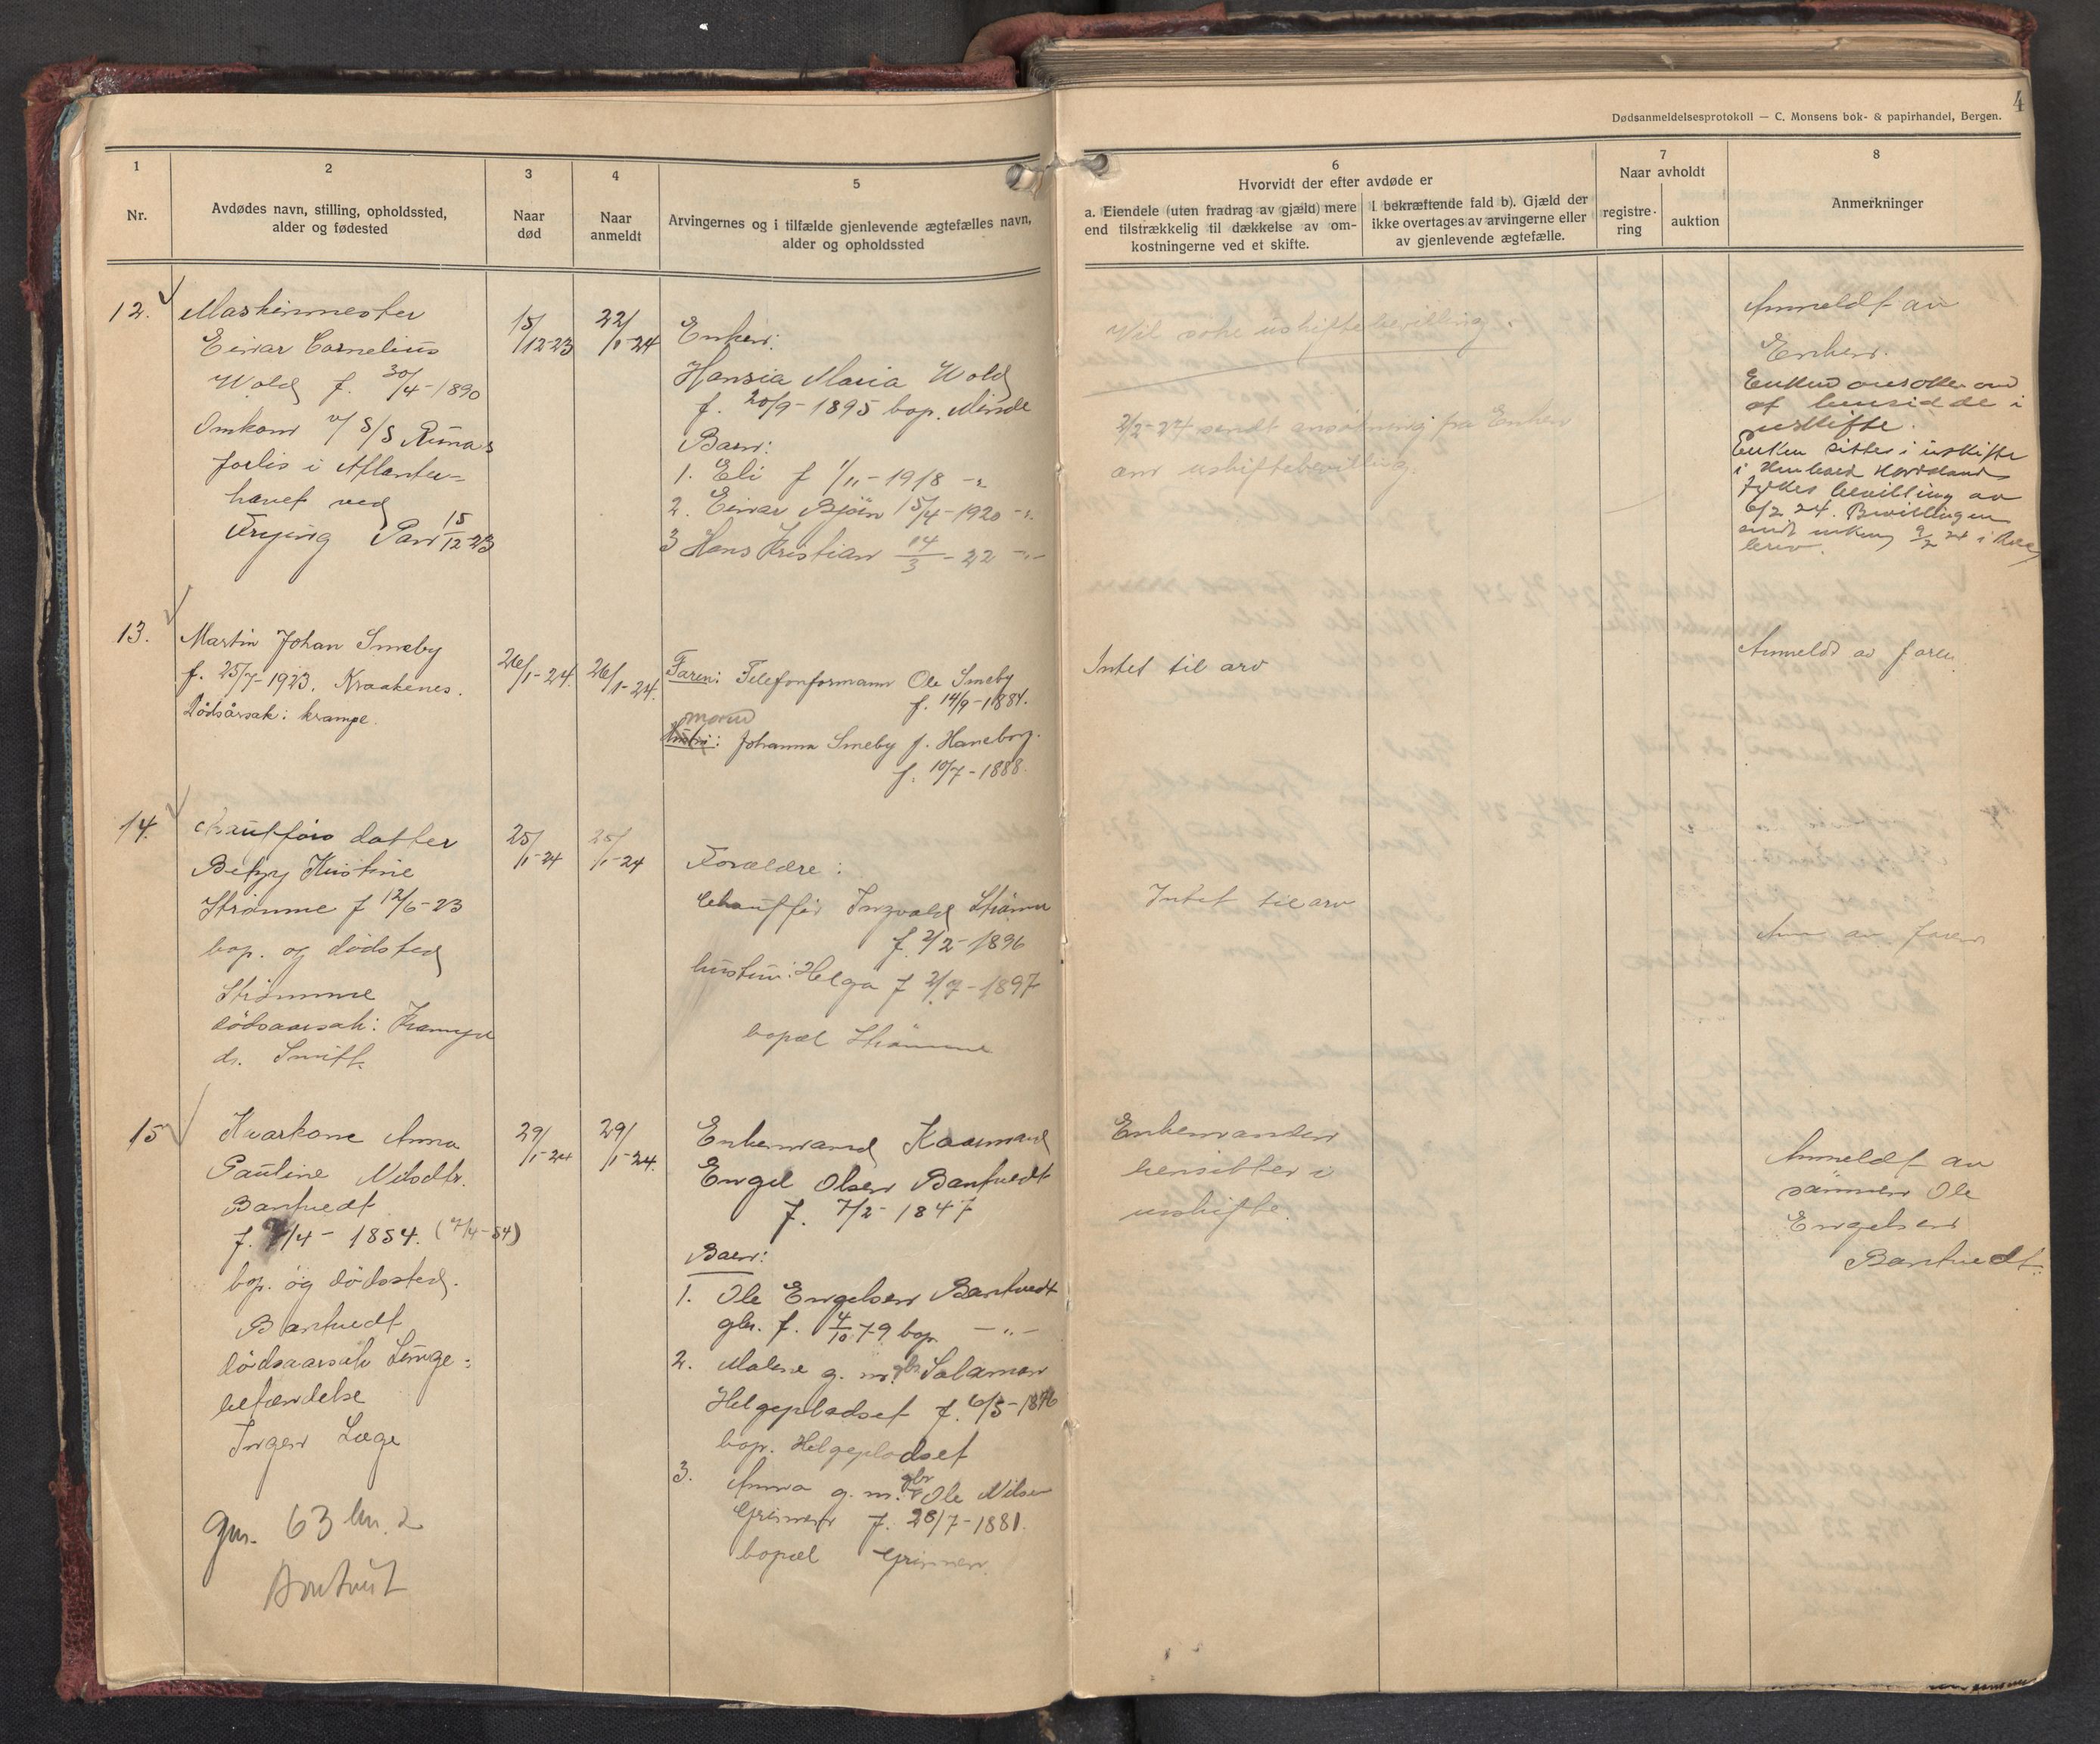 4
Dødsanmeldelsesprotokoll — C. Monsens bok- & papirhandel, Bergen.
1
Nr.
2
Avdødes navn, stilling, opholdssted,
alder og fødested
3
Naar
død
4
Naar
anmeldt
5
Arvingernes og i tilfælde gjenlevende ægtefælles navn,
alder og opholdssted
6
Hvorvidt der efter avdøde er
a. Eiendele (uten fradrag av gjæld) mere
end tilstrækkelig til dækkelse av om-
kostningerne ved et skifte.
I bekræftende fald b). Gjæld der
ikke overtages av arvingerne eller
av gjenlevende ægtefælle.
7
Naar avholdt
registre-
ring
auktion
8
Anmerkninger
12.
Maskinmester
Einar Cornelius
Wold f. 30/4-1890
Omkom v/ S/S Runas
forlis i Atlanter-
havet ved
Frying Pan 15/12-23
15/12-23
22/1-24
Enken:
Hansia Maria Wold
f. 20/9-1895 bop. Minde
Barn:
1. Eli f 1/11-1918 -"-
2. Einar Bjørn 15/4-1920 -"-
3 Hans Kristian 14/3-22 -"-
Vil søke uskiftebevilling.
2/2-24 sendt ansøkning fra Enken
om uskiftebevilling.
Anmeldt av
Enken.
Enken ansøker om
at hensidde i
uskifte.
Enken sitter i uskifte
i Henhold Hordaland
fylkes bevilling av
6/2 24. Bevillingen
sendt enken 9/2 24 i
brev.
13.
Martin Johan Smeby
f. 25/7-1923. Kraakenes.
Dødsårsak: krampe.
26/1-24.
26/1-24.
Faren: Telefonformann Ole Smeby
f. 14/9-1884.
moren
Johanna Smeby f. Haneborg.
f. 10/7-1888.
Intet til arv
Anmeldt av faren
14.
Chaufførs datter
Betzy Kristine
Strømme f 12/6-23
bop. og dødsted
Strømme
dødsaarsak: Krampe
dr. Smitt.
25/1-24
25/1-24
Forældre:
Chauffør Ingvald Strømme
f. 2/2-1896
hustru: Helga f 2/9-1897
bopæl Strømme
Intet til arv
Anm av faren
15
Kvarkone Anna
Pauline Nilsdtr.
Bantvedt
f. 7/4- 1854. (7/4-54)
bop. og dødssted.
Bantvedt
dødsaarsak Lunge-
betændelse
Ingen Læge
gnr. 63 bn. 2
29/1-24
29/1-24.
Enkemand Kaarmand
Engel Olsen Bantvedt
f. 7/2-1847
Barn:
1. Ole Engelsen Bantvedt
gbr. f. 4/10 79 bop. -"-
2. Malene g. m. gbr Salamon
Helgepladset f. 6/5-1876
bop. Helgepladset
3. Anna g. m. gbr Ole Nilsen
Grimen f. 28/7-1881.
bopæl Grimen.
Enkemanden
hensitter i
uskifte.
Anmeldt av
sønnen Ole
Engelsen
Bantvedt.